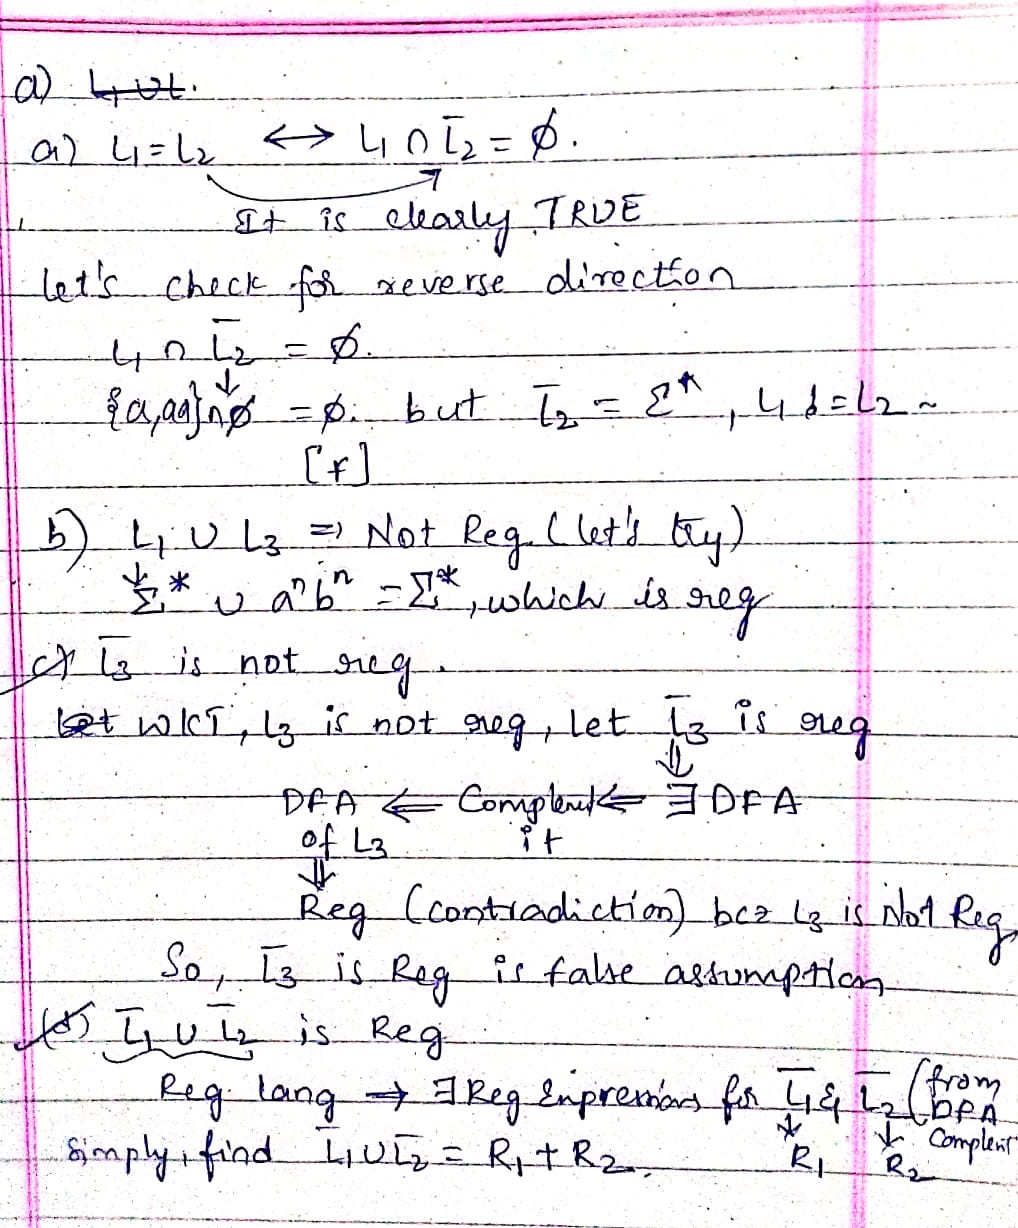 a)
a) L1 = L2 ↔ L1 ∩ L̅2 = ∅.
It is clearly TRUE
let's check for reverse direction
L1 ∩ L̅2 = ∅.
{a,aa} ∩ ∅ = ∅. but L̅2 = Σ*, L1 = L2
[F]
b) L1 ∪ L3 ⇒ Not Reg. (let's try)
Σ* ∪ aⁿbⁿ = Σ*, which is reg
c) L̅3 is not reg.
WKT, L3 is not reg, let L̅3 is reg
DFA ⇐ Complement ⇐ ∃ DFA
of L3 it
Reg (contradiction) bcz L3 is Not Reg
So, L̅3 is Reg is false assumption
(d) L̅1 ∪ L̅2 is Reg
Reg. lang → ∃ Reg Expressions for L̅1 & L̅2 (from DFA
Complent
Simply, find L̅1 ∪ L̅2 = R1 + R2.
R1 R2